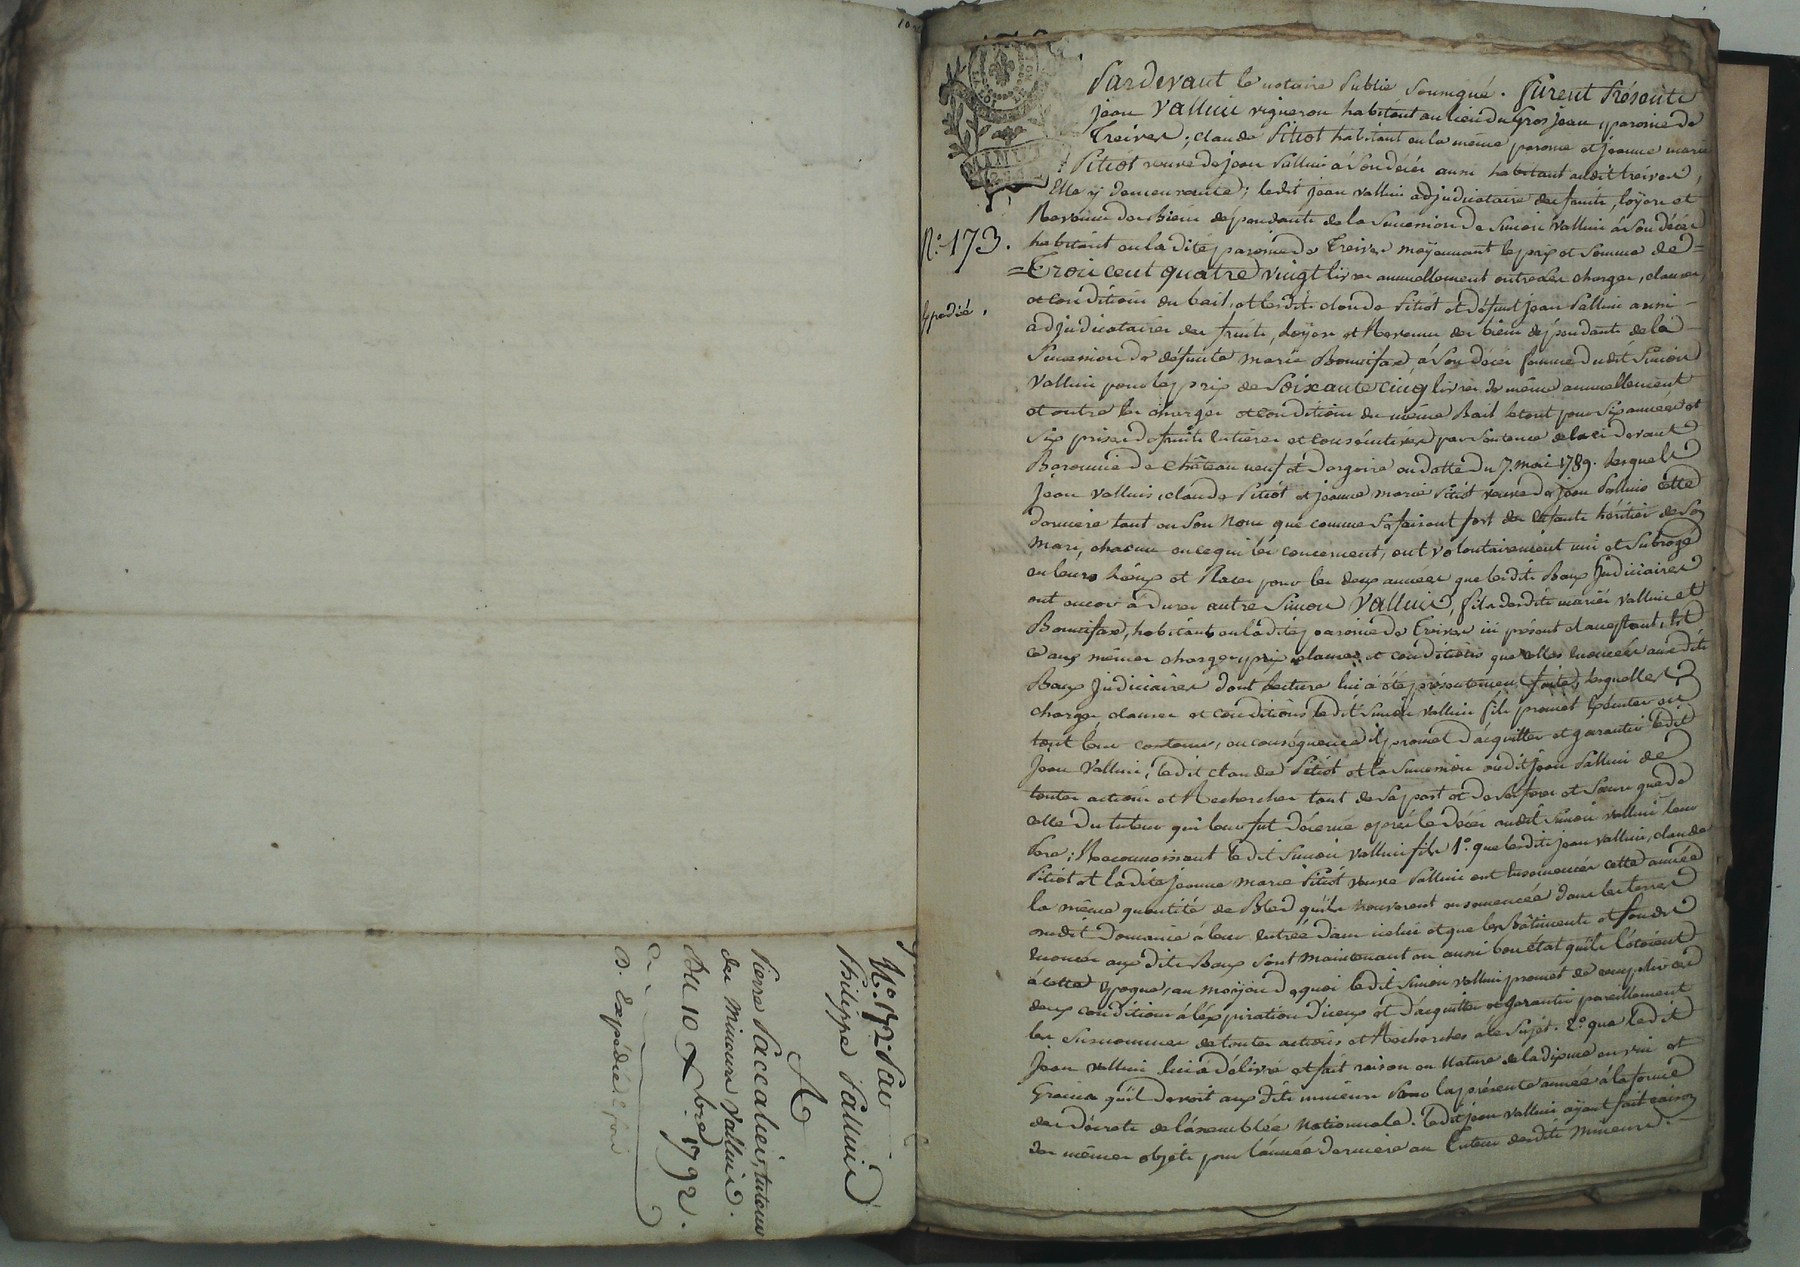 N.° 172. Pav
Philippe Valluis
A
Pierre Paccalier, tuteur
des mineurs Valluis.
Du 10 Xbre 1792.
2. Expédié 2 fois
MINUT
N.° 173.
Expedié.
Pardevant le notaire Public soussigné. Furent Présents
jean Valluis vigneron habitant au lieu du Gros jean, paroisse de
Treives; claude Pitiot habitant en la même paroisse et jeanne marie
Pitiot veuve de jean Valluis à son décès aussi habitant audit treives,
Elle y demeurante; ledit jean valluis adjudicataire des fruits, loyers et
Revenus des Biens dependants de la Succession de Simon Valluis à son décès
habitant en la dite paroisse de Treives moyennant le prix et Somme de=
=Trois cent quatre vingt livres annuellement outre les charges, clauses,
et conditions du bail, et lesdits claude Pitiot et défunt jean Valluis aussi
adjudicataires des fruits, loyers et Revenus des biens dépendants de la
Succession de défunte marie Bonnifax, à Son décès femme dudit Simon
Valluis pour le prix de Soixante cinq livres de même annuellement
et outre les charges et conditions du même Bail le tout pour Six années et
Six prises de fruits entières et consécutives par Sentence de la ci devant
Baronnie de château neuf et dargoire en datte du 7. mai 1789. lesquels
jean valluis, claude Pitiot et jeanne marie Pitiot veuve de jean Valluis cette
derniere tant en Son nom que comme Se faisant fort des Enfants héritiers de Son
mari, chacun en ce qui les concernent, ont volontairement mis et Subrogé
en leurs Lieux et Places pour les deux années que lesdits Baux judiciaires
ont encor à durer autre Simon Valluis, fils desdits mariés valluis et
Bonnifax, habitant en la dite paroisse de Treives ici présent et acceptant, Et
ce aux mêmes charges, prix clauses et conditions que celles énoncées auxdits
Baux judiciaires dont lecture lui à été présentement faite, lesquelles
charges, clauses et conditions ledit Simon valluis fils promet Exécuter en
tout leur contenu, en conséquence il promet d'acquitter et garantir ledit
jean Valluis, ledit claude Pitiot et la Succession dudit jean Valluis de
toutes actions et Recherches tant de Sa part et de Ses freres et Soeurs que de
celle du tuteur qui leur fut décerné après le décès dudit Simon Valluis leur
Pere; Reconnoissant ledit Simon Valluis fils 1.° que lesdits jean valluis, claude
Pitiot et ladite jeanne marie Pitiot veuve Valluis ont Ensemencés cette année
la même quantité de Bled qu'ils trouverent ensemencée dans les terres
dudit Domaine à leur entrée dans icelui et que les bâtiments et fonds
énoncés aux dits Baux Sont maintenant en aussi bon état qu'ils l'étoient
à cette Epoque, au moyen de quoi ledit Simon valluis promet de remplir ces
deux conditions à l'expiration d'iceux et d'acquitter et garantir pareillement
les Susnommés de toutes actions et Recherches à ce Sujet. 2.° que ledit
Jean valluis lui à délivré et fait raison en Nature de la dixme en vin et
Grains qu'il devoit aux dits mineurs Pour la présente année à la forme
des décrets de l'assemblée Nationnale. ledit jean valluis ayant fait raison
des mêmes objets pour l'année derniere au Tuteur desdits Mineurs.